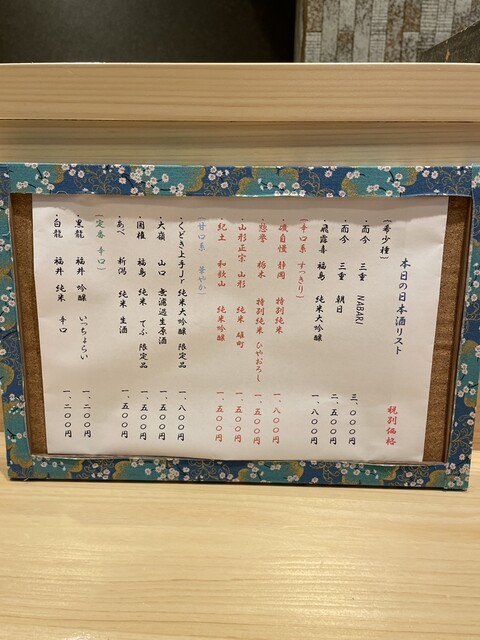 本日の日本酒リスト 税別価格
(希少種)
・而今 三重 NABARI 三、〇〇〇円
・而今 三重 朝日 二、五〇〇円
・飛露喜 福島 純米大吟醸 一、八〇〇円
(辛口系 すっきり)
・磯自慢 静岡 特別純米 一、八〇〇円
・惣誉 栃木 特別純米 ひやおろし 一、五〇〇円
・山形正宗 山形 純米 雄町 一、五〇〇円
・紀土 和歌山 純米吟醸 一、五〇〇円
(甘口系 華やか)
・くどき上手Jr 純米大吟醸 限定品 一、八〇〇円
・大嶺 山口 無濾過生原酒 一、五〇〇円
・国権 福島 純米 てふ 限定品 一、五〇〇円
・あべ 新潟 純米 生酒 一、五〇〇円
(定番 辛口)
・黒龍 福井 吟醸 いっちょらい 一、二〇〇円
・白龍 福井 純米 辛口 一、二〇〇円